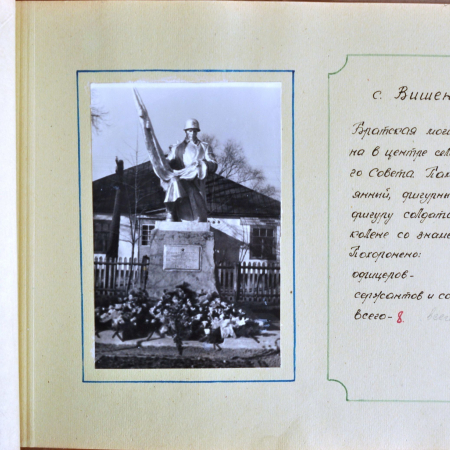 с. Вишен
Братская моги
на в центре сел
го Совета. Пам
янний, фигурны
фигуру солдат
колене со знаме
Похоронено:
офицеров-
сержантов и со
всего- 8.